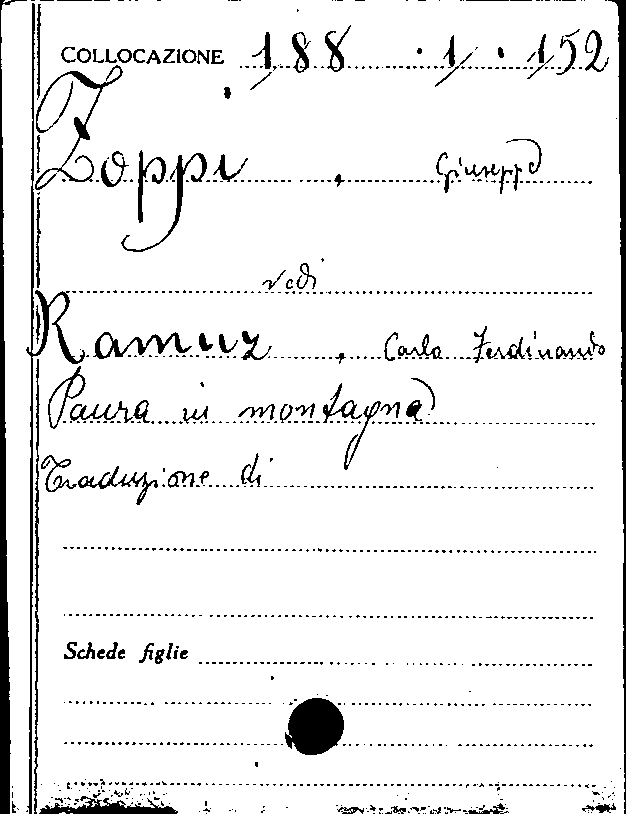 COLLOCAZIONE 188 . 1 . 152
Zoppi , Giuseppe
vedi
Ramuz , Carlo Ferdinando
Paura in montagna
Traduzione di
Schede figlie